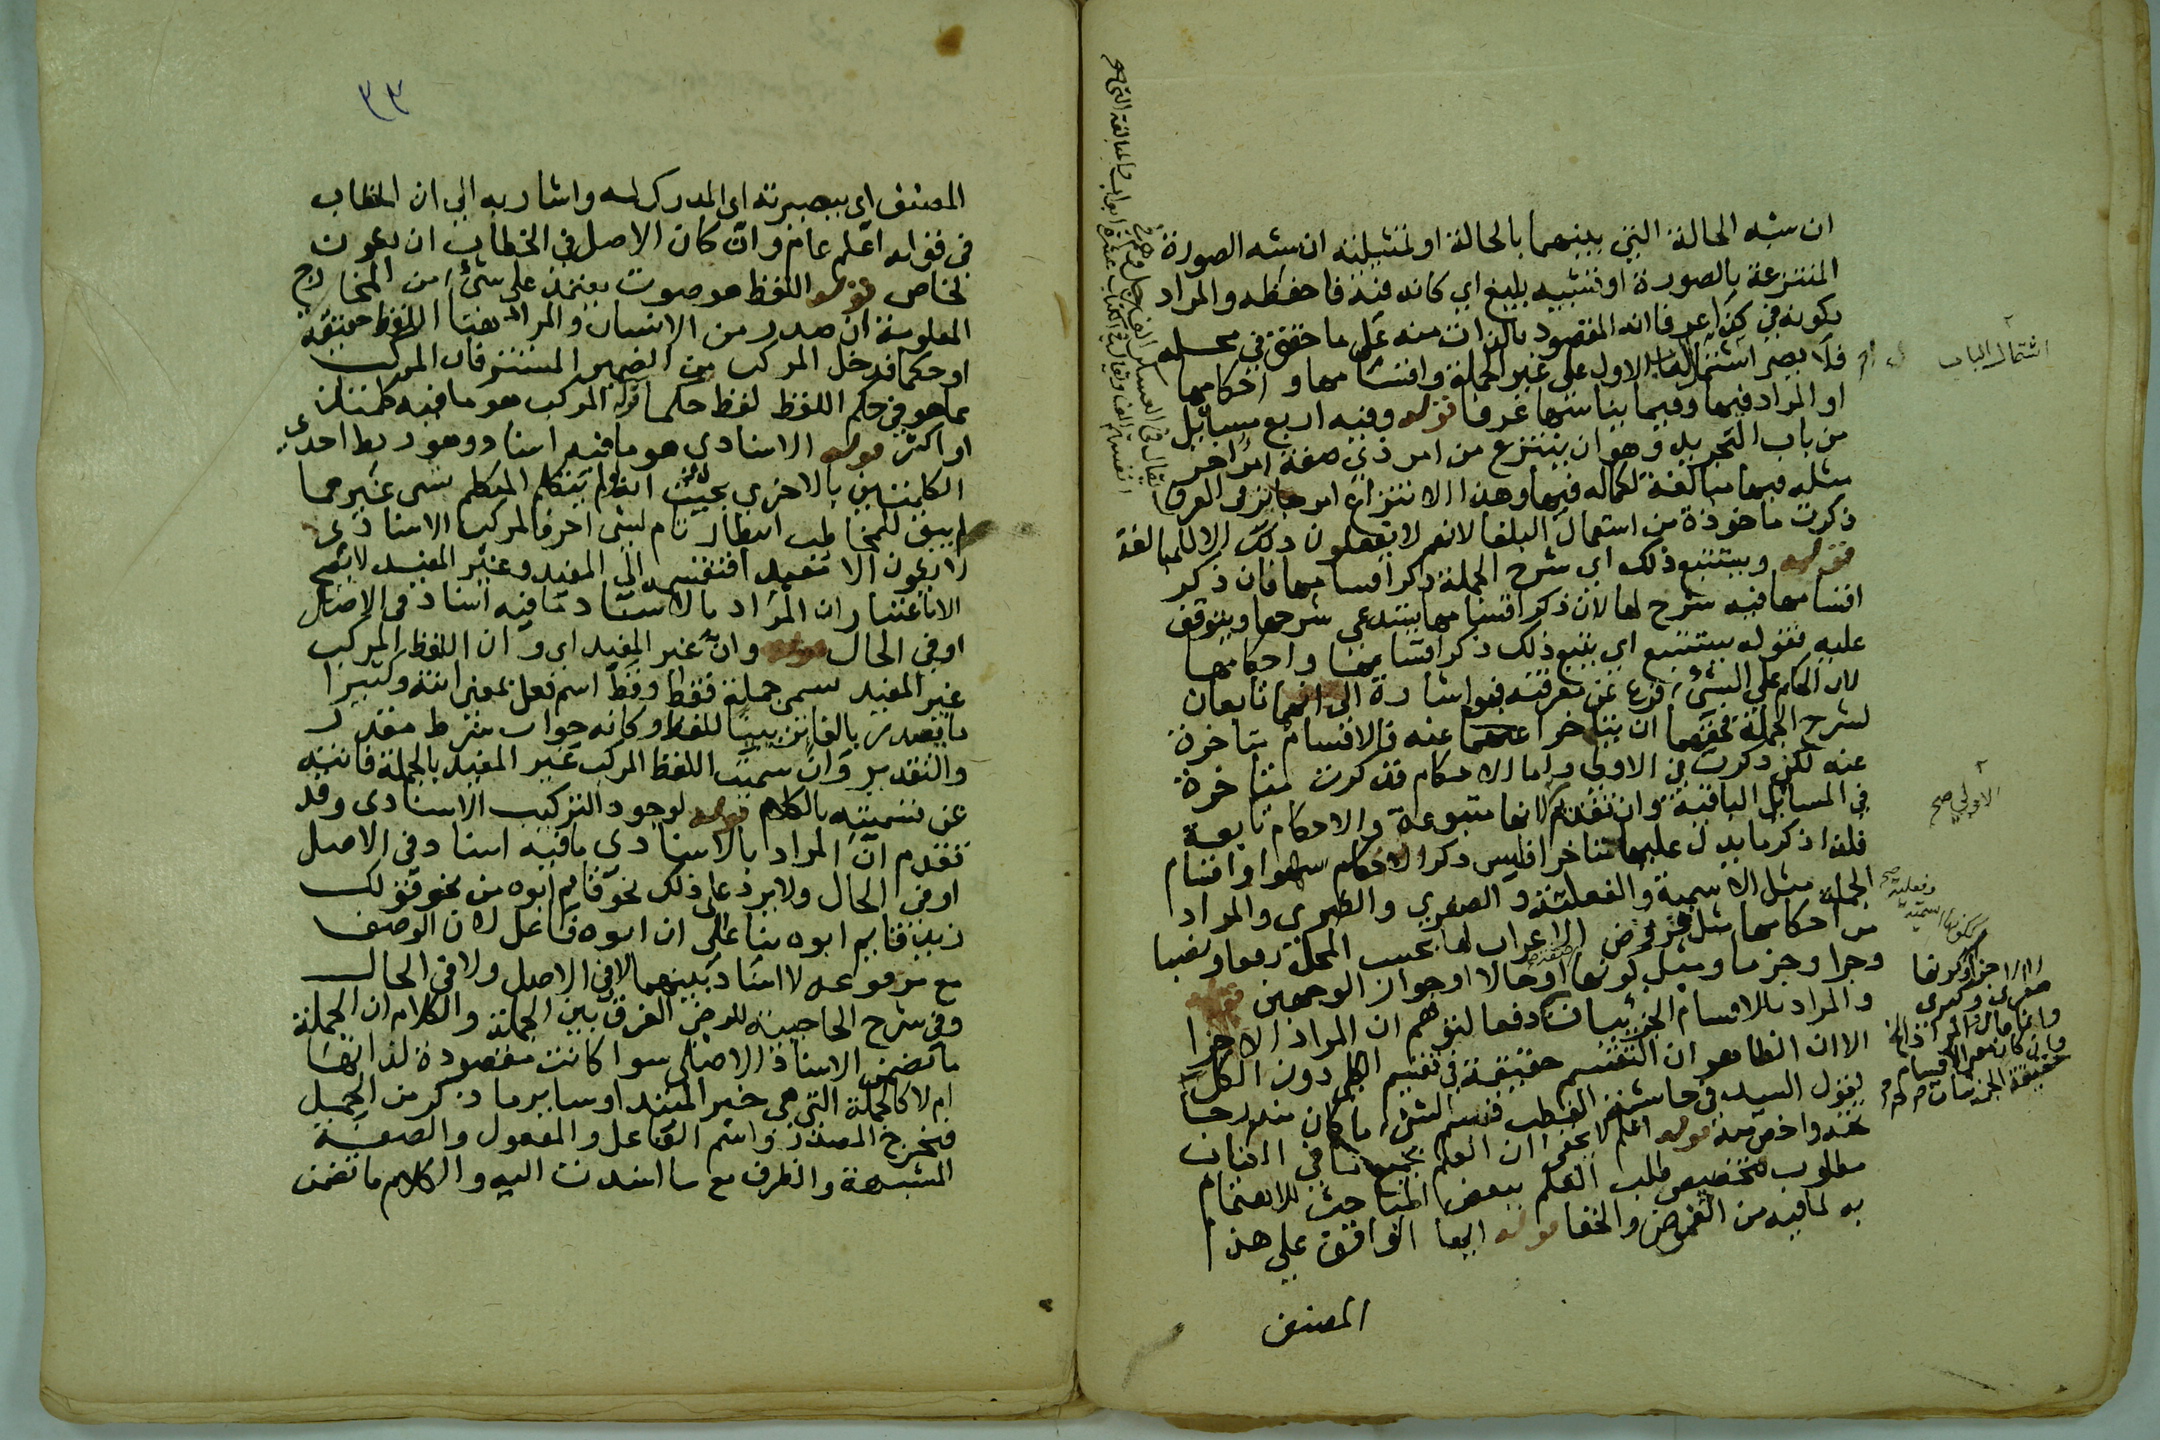 ان شبه الحالة التي بينهما بالحالة او تمثيلية ان شبه الصورة
المنتزعة بالصورة او تشبيه بليغ اي كانه فيه فاحفظه والمراد
بكونه في كذا عرفا انه المقصود بالذات منه على ما حقق في محله
فلا يضر اشتمال الباب الاول على غير الجملة واقسامها واحكامها
او المراد فيها وفيما يناسبها عرفا قوله وفيه اربع مسائل
من باب التجريد وهو ان ينتزع من امر ذي صفة امر اخر
مثله فيها مبالغة لكماله فيها وهذا الانتزاع امر جايز في العرف
ذكرت ماخوذة من استعمال البلغا لانهم لا يفعلون ذلك الا للمبالغة
قوله ويستتبع ذلك اي شرح الجملة ذكر اقسامها فان ذكر
اقسامها فيه شرح لها لان ذكر اقسامها يستدعي شرحها ويتوقف
عليه فقوله يستتبع اي يتبع ذلك ذكر اقسامها واحكامها
لان الحكم على الشئ فرع عن معرفته ففيه اشارة الى انهما تابعان
لشرح الجملة فحقهما ان يتاخرا عنه فالاقسام متاخرة
عنه لكن ذكرت في الاولي واما الاحكام فذكرت متاخرة
في المسائل الباقية وان تقدم لانها متبوعة والاحكام تابعة
فلذا ذكر ما يدل عليها متاخرا فليس ذكر الاحكام سهوا واقسام
الجملة مثل الاسمية والفعلية والصغري والكبرى والمراد
من احكامها مثل عروض الاعراب لها بحسب المحل رفعا ونصبا
وجرا وجزما ومثل كونها صفة او حالا او جواز الوجهين قوله
والمراد بالاقسام الجزئيات دفعا لتوهم ان المراد الاجزا
الا ان الظاهر ان التقسيم حقيقة في تقسيم الكلي دون الكل
يقول السيد في حاشية القطب قسم الشئ ما كان مندرجا
تحته واخص منه قوله اعلم لا يخفى ان العلم بجميع ما في الكتاب
مطلوب فتخصيص طلب العلم ببعض المباحث للاهتمام
به لما فيه من الغموض والخفا قوله ايها الواقف على هذا
المصنف
اشتمال الباب
الاولي صح
٣٣
المصنف اي ببصيرته اي المدرك له واشار به الى ان الخطاب
في قوله اعلم عام وان كان الاصل في الخطاب ان يكون
لخاص قوله اللفظ هو صوت يعتمد على شئ من المخارج
المعلومة ان صدر من الانسان والمراد هنا اللفظ حقيقة
او حكما فدخل المركب من الضمير المستتر فان المركب
مما هو في حكم اللفظ لفظ حكما قوله المركب هو ما فيه كلمتان
او اكثر قوله الاسنادي هو ما فيه اسناد وهو ربط احدى
الكلمتين بالاخري بحيث انه لو لم يتكلم المتكلم بشى غيرهما
لم يبق للمخاطب انتظار تام لشى اخر فالمركب الاسنادى
لا يكون الا مفيد فتقسيمه الى المفيد وغير المفيد لا يصح
الا باعتبار ان المراد بالاسناد ما فيه اسناد في الاصل
او في الحال قوله وان غير المفيد اي وان اللفظ المركب
غير المفيد يسمى جملة فقط وقط اسم فعل بمعنى انته وكثيرا
ما يصدر بالفا تزيينا للفظ وكانه جواب شرط مقدر
والتقدير وان سميت اللفظ المركب غير المفيد بالجملة فانته
عن تسميته بالكلام قوله لوجود التركيب الاسنادى وقد
تقدم ان المراد بالاسنادي ما فيه اسناد في الاصل
او في الحال ولا يرد على ذلك نحو قايم ابوه من نحو قولك
زيد قايم ابوه بنا على ان ابوه فاعل لان الوصف
مع مرفوعه لا اسناد بينهما لا في الاصل ولا في الحال
وفي شرح الحاجبية للرضي الفرق بين الجملة والكلام ان الجملة
ما تضمن الاسناد الاصلي سوا كانت مقصودة لذاتها
ام لا كالجملة التي هي خبر المبتدا وساير ما ذكر من الجمل
فيخرج المصدر واسم الفاعل والمفعول والصفة
المشبهة والظرف مع ما اسندت اليه والكلام ما تضمن